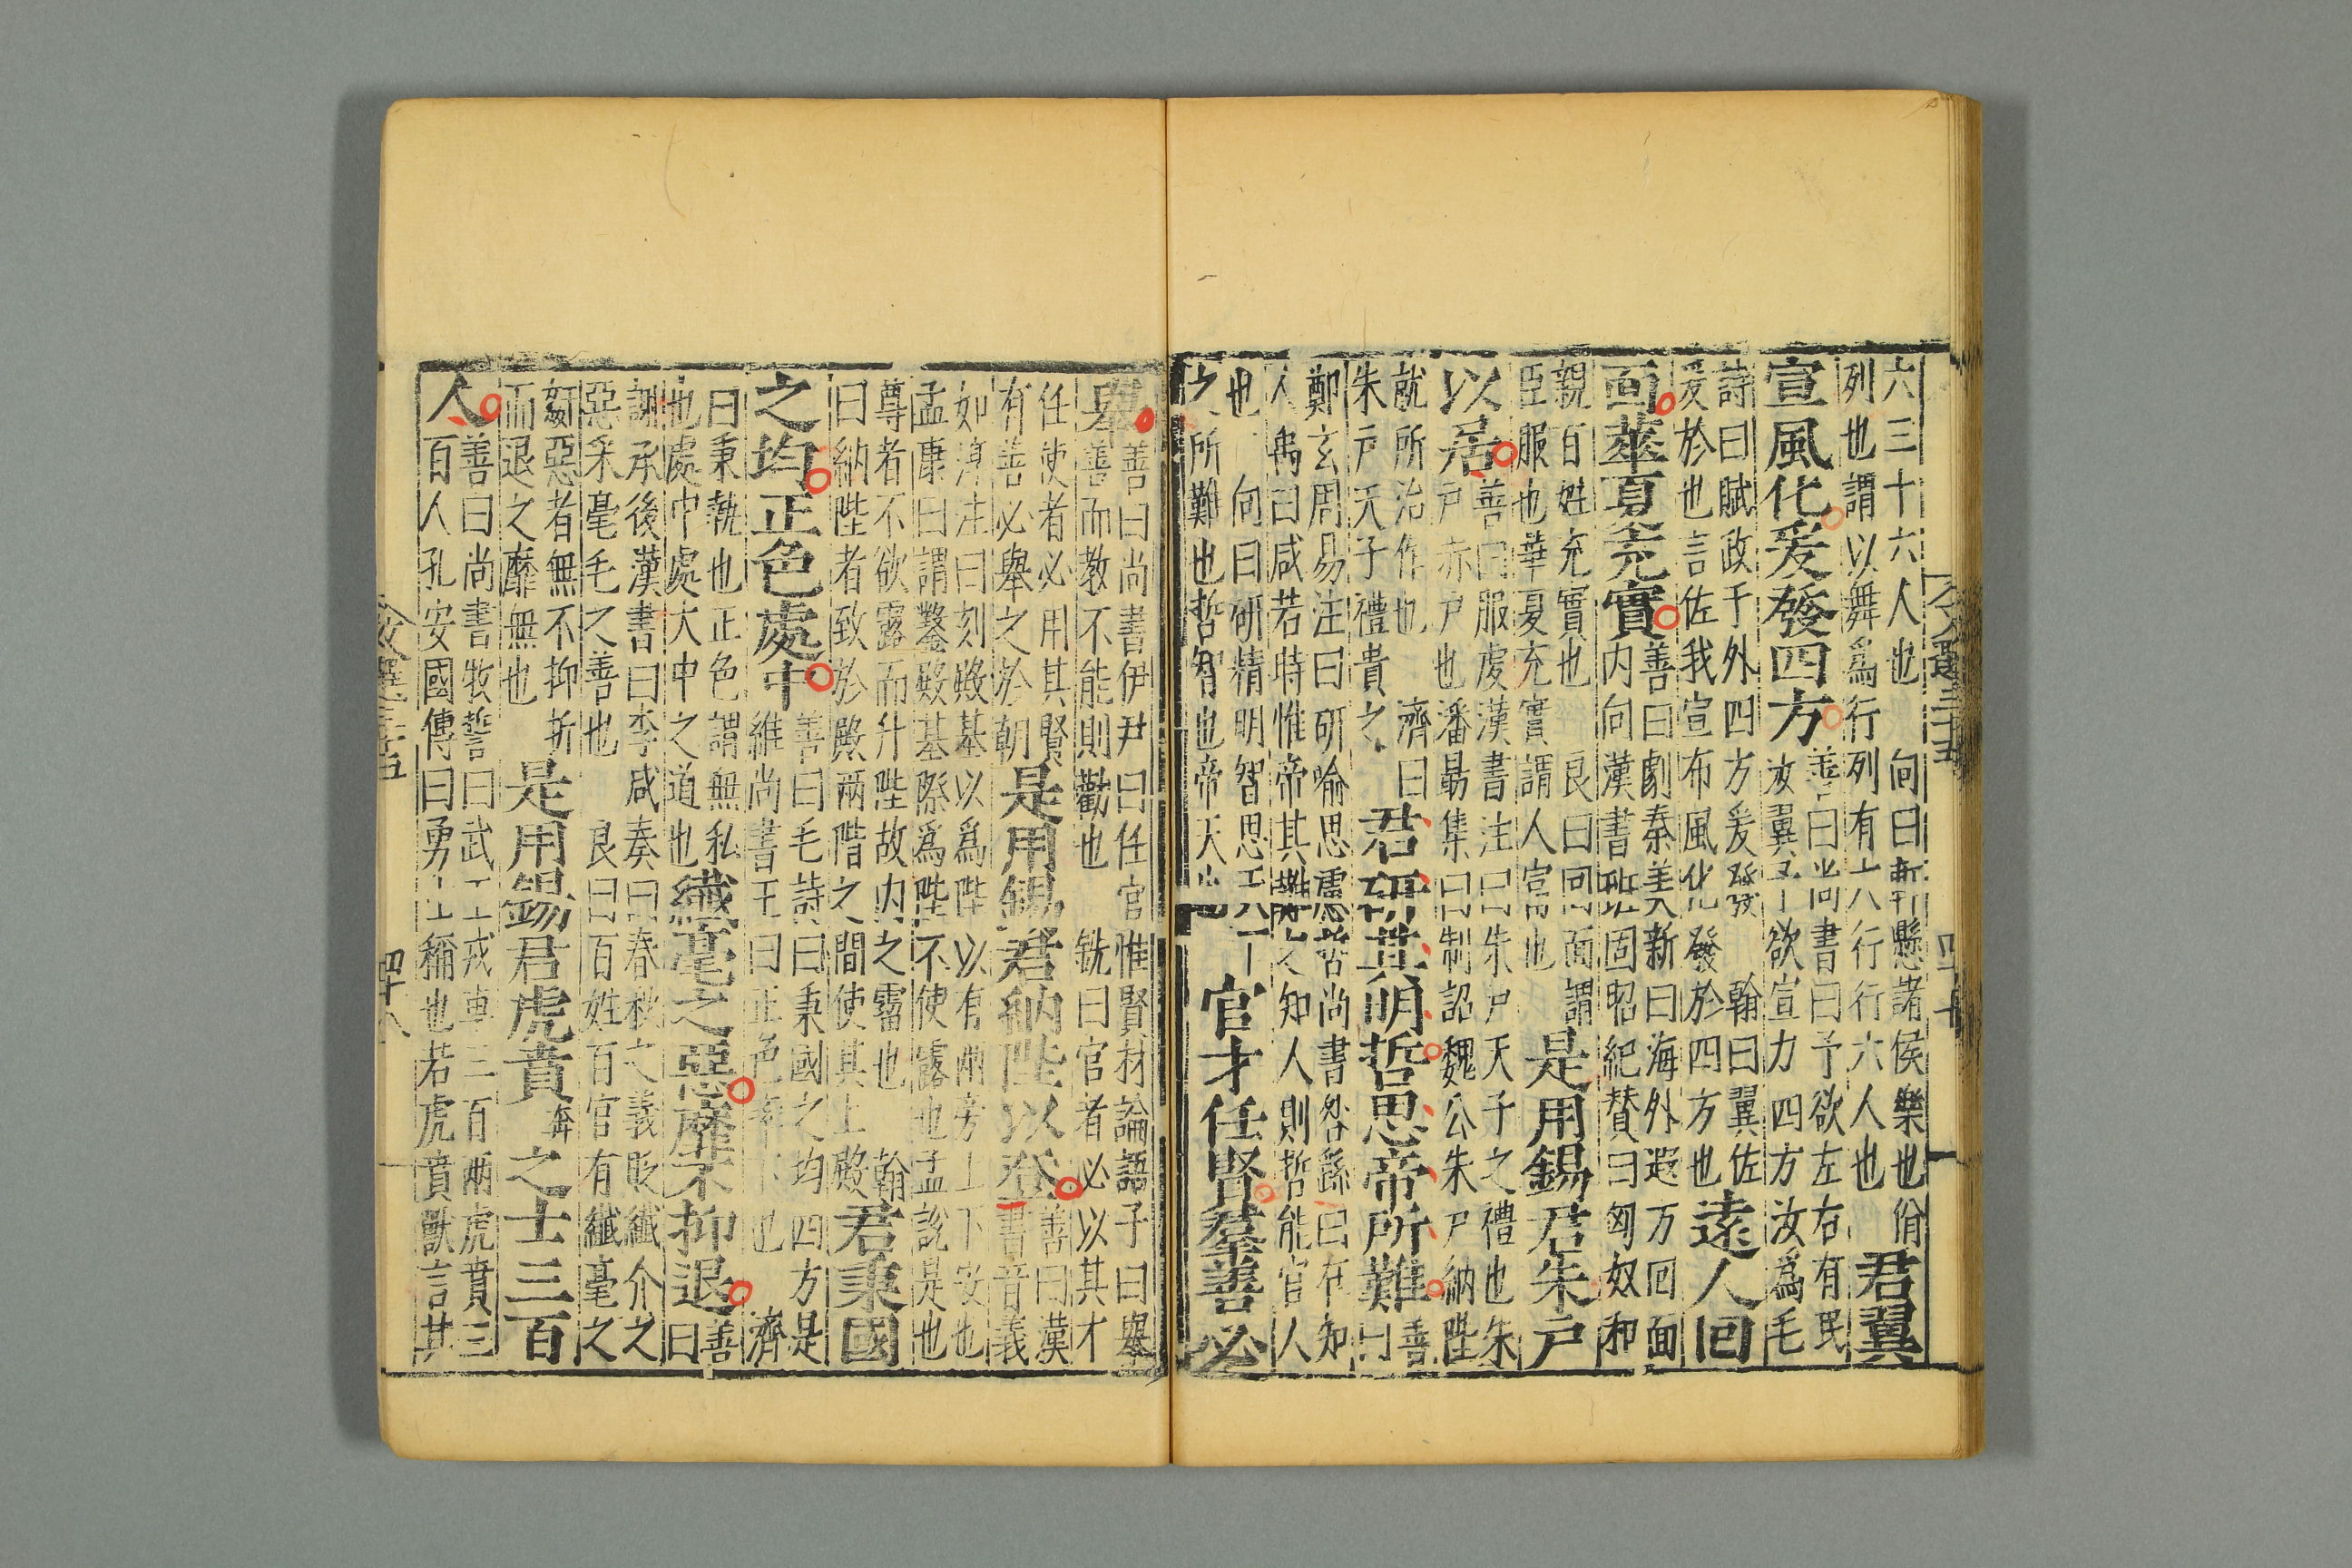 文選三十五
六三十六人也　向曰軒懸諸侯樂也佾
列也謂以舞爲行列有六八行行六人也
君翼
宣風化爰發四方
善曰尚書曰予欲左右有民
汝翼予欲宣力四方汝爲毛
詩曰賦政于外四方爰發　翰曰翼佐
爰於也言佐我宣布風化發於四方也
遠人回
面華夏充實
善曰劇秦美新曰海外遐方回面
内向漢書班固昭紀賛曰匈奴和
親百姓充實也　良曰回面謂
臣服也華夏充實謂人富也
是用錫君朱户
以居
善曰服虔漢書注曰朱户天子之禮也朱
户赤户也潘勗集曰制詔魏公朱户納陛
就所治作也　濟曰
朱户天子禮貴之
君研其明哲思帝所難
善
曰
鄭玄周易注曰研喻思慮若尚書咎繇曰在知
人禹曰咸若時惟帝其難之知人則哲能官人
也　向曰研精明智思天下
之所難也哲智也帝天也
官才任賢羣善必
舉
善曰尚書伊尹曰任官惟賢材論語子曰舉
善而教不能則勸也　銑曰官者必以其才
任使者必用其賢
有善必舉之於朝
是用錫君納陛以登
善曰漢
書音義
如淳注曰刻殿基以爲陛以有兩旁上下安也
孟康曰謂鑿殿基際爲陛不使露也孟説是也
尊者不欲露而升陛故内之霤也　翰
曰納陛者致於殿兩階之間使其上殿
君秉國
之均正色處中
善曰毛詩曰秉國之均四方是
維尚書王曰正色率下也　濟
曰秉執也正色謂無私
也處中處大中之道也
纖毫之惡靡不抑退
善
曰
謝承後漢書曰李咸奏曰春秋之義貶纖介之
惡采毫毛之善也　良曰百姓百官有纖毫之
姧惡者無不抑折
而退之靡無也
是用錫君虎賁
奔
之士三百
人
善曰尚書牧誓曰武王戎車三百兩虎賁三
百人孔安國傳曰勇士稱也若虎賁獸言其
文選三十五
四十八